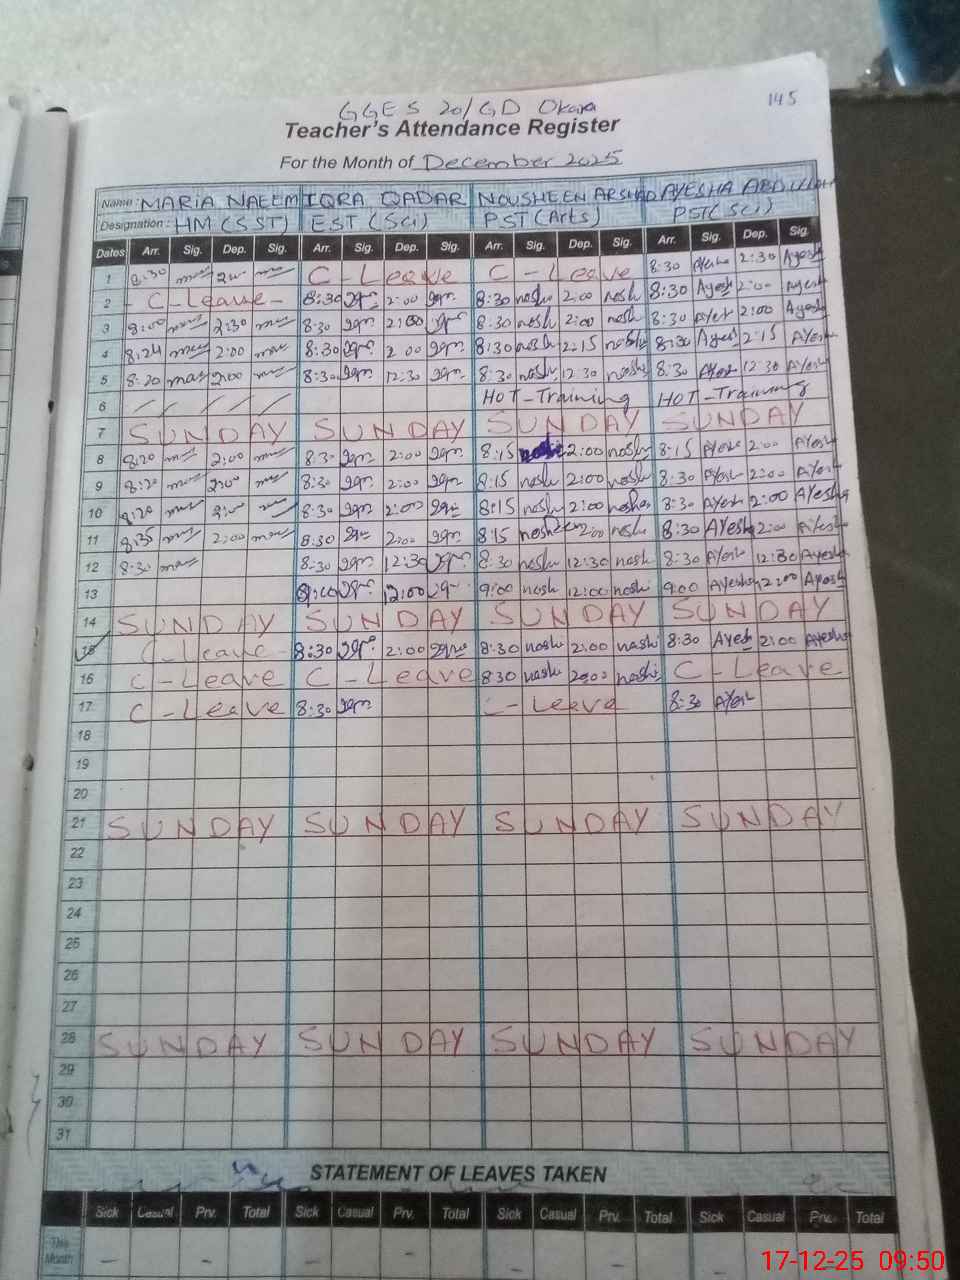 145
GGES 20/GD Okara
Teacher's Attendance Register
For the Month of December 2025
Name: MARIA NAEEM IQRA QADAR NOUSHEEN ARSHAD AYESHA ABDULLAH
Designation: HM (SST) EST (Sci) PST (Arts) PST (Sci)
Dates Arr. Sig. Dep. Sig. Arr. Sig. Dep. Sig. Arr. Sig. Dep. Sig. Arr. Sig. Dep. Sig.
1 8:30 C-Leave C-Leave 8:30 2:30 Ayesh
2 C-Leave- 8:30 2:00 8:30 nosh 2:00 nosh 8:30 Ayesh 2:00 Ayesh
3 8:00 2:30 8:30 2:00 8:30 nosh 2:00 nosh 8:30 Ayesh 2:00 Ayesh
4 8:24 2:00 8:30 2:00 8:30 nosh 2:15 nosh 8:30 Ayesh 2:15 Ayesh
5 8:20 2:00 8:30 12:30 8:30 nosh 12:30 nosh 8:30 Ayesh 12:30 Ayesh
6 HOT-Training HOT-Training
7 SUNDAY SUNDAY SUNDAY SUNDAY
8 8:20 2:00 8:30 2:00 8:15 2:00 nosh 8:15 Ayesh 2:00 Ayesh
9 8:20 2:00 8:30 2:00 8:15 nosh 2:00 nosh 8:30 Ayesh 2:00 Ayesh
10 8:20 2:00 8:30 2:00 8:15 nosh 2:00 nosh 8:30 Ayesh 2:00 Ayesha
11 8:35 2:00 8:30 2:00 8:15 2:00 nosh 8:30 Ayesh 2:00 Ayesh
12 8:30 8:30 12:30 8:30 nosh 12:30 nosh 8:30 Ayesh 12:30 Ayesha
13 9:00 12:00 9:00 nosh 12:00 nosh 9:00 Ayesha 12:00 Ayesh
14 SUNDAY SUNDAY SUNDAY SUNDAY
15 C-Leave- 8:30 2:00 8:30 nosh 2:00 nosh 8:30 Ayesh 2:00 Ayesha
16 C-Leave C-Leave 8:30 nosh 2:00 nosh C-Leave
17 C-Leave 8:30 C-Leave 8:30 Ayesh
18
19
20
21 SUNDAY SUNDAY SUNDAY SUNDAY
22
23
24
25
26
27
28 SUNDAY SUNDAY SUNDAY SUNDAY
29
30
31
STATEMENT OF LEAVES TAKEN
Sick Casual Prv. Total Sick Casual Prv. Total Sick Casual Prv. Total Sick Casual Prv. Total
This Month - - - - - -
17-12-25 09:50